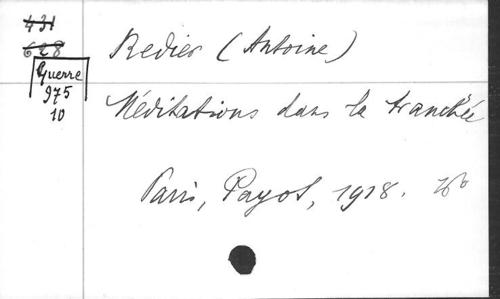 431
628
Guerre
975
10
Redier (Antoine)
Méditations dans la tranchée
Paris, Payot, 1918.